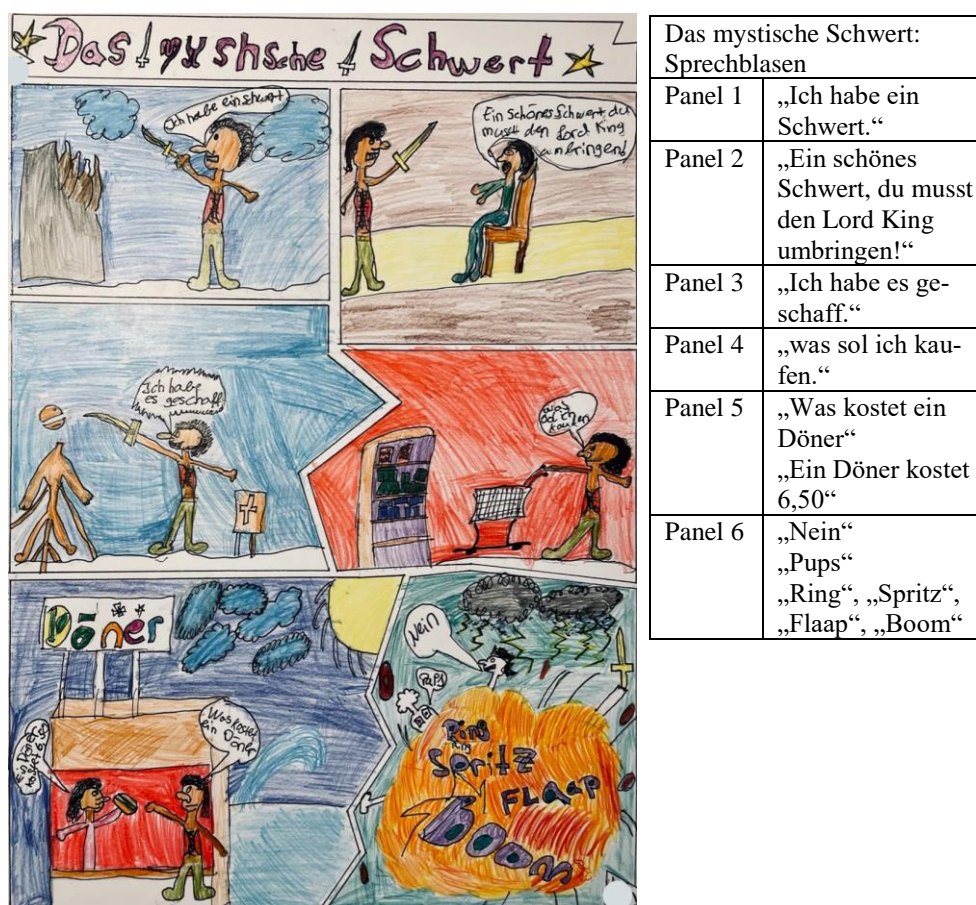 Das mystische Schwert
Ich habe ein schwert
Ein schönes Schwert, du
musst den Lord King
umbringen!
Ich habe
es geschaff
was
sol ich
kaufen
Döner
Ein Döner
kostet 6,50
Was kostet
ein Döner
Nein
Pups
Ring
Spritz
FLaap
Boom
Das mystische Schwert:
Sprechblasen
Panel 1 „Ich habe ein
Schwert.“
Panel 2 „Ein schönes
Schwert, du musst
den Lord King
umbringen!“
Panel 3 „Ich habe es ge-
schaff.“
Panel 4 „was sol ich kau-
fen.“
Panel 5 „Was kostet ein
Döner“
„Ein Döner kostet
6,50“
Panel 6 „Nein“
„Pups“
„Ring“, „Spritz“,
„Flaap“, „Boom“